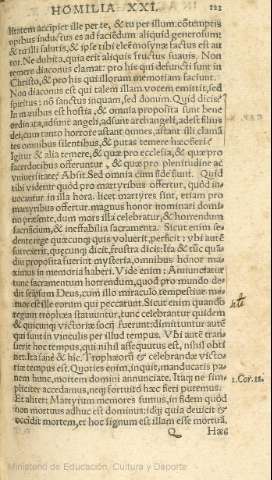 HOMILIA XXI. 121
tem accipiet ille per te, & tu per illum: cōtemptis
opibus inductus es ad faciēdum aliquid generosum:
& tu illi salutis, & ipse tibi eleēmosynæ factus est au
tor. Ne dubita, quia erit aliquis fructus suauis. Non
temere diaconus clamat: pro his qui defuncti sunt in
Christo, & pro his qui illorum memoriam faciunt.
Non diaconus est qui talem illam vocem emittit, sed
spiritus: nō sanctus inquam, sed donum. Quid dicis?
In manibus est hostia, & omnia proposita sunt bene
ordinata, adsunt angeli, adsunt archangeli, adest filius
dei, cum tanto horrore astant omnes, astant illi clamā
tes omnibus silentibus, & putas temere hæc fieri?
Igitur & alia temere, & quæ pro ecclesia, & quæ pro
sacerdotibus offeruntur, & quæ pro plenitudine ac
vniuersitate? Absit. Sed omnia cum fide fiunt. Quid
tibi videtur quòd pro martyribus offertur, quòd in-
uocantur in illa hora. licet martyres sint, etiam pro
martyribus offertur. magnus honor nominari domi
no præsente, dum mors illa celebratur, & horrendum
sacrificium, & ineffabilia sacramenta. Sicut enim se-
dente rege quæcunq; quis voluerit, perficit: vbi autē
surrexerit, quęcunq; dicit, frustra dicit: Ita & tūc quā-
diu proposita fuerint mysteria, omnibus honor ma-
ximus in memoria haberi. Vide enim: Annunciatur
tunc sacramentum horrendum, quòd pro mundo de-
dit seipsum Deus, cum illo miraculo tempestiuè mo-
net eos ille eorum qui peccarunt. Sicut enim quando
regum trophæa statuuntur, tunc celebrantur quidem
& quicunq; victoriæ socij fuerunt: dimittuntur autē
qui sunt in vinculis per illud tempus. Vbi autē tran-
sierit hoc tempus, qui nihil assequutus est, nihil obti
net. Ita sanè & hîc. Trophæorū & celebrandæ victo-
riæ tempus est. Quoties enim, inquit, manducatis pa-
nem hunc, mortem domini annunciatis. Itáq; ne sim-
pliciter accedamus, neq; fortuitò hæc fieri putemus.
Et aliter: Martyrum memores sumus, in fidem quòd
non mortuus adhuc est dominus: idq; quia deuicit &
occidit mortem, et hoc signum est illam esse mortuā,
1. Cor. 11.
Q Hæc
Ministerio de Educación, Cultura y Deporte